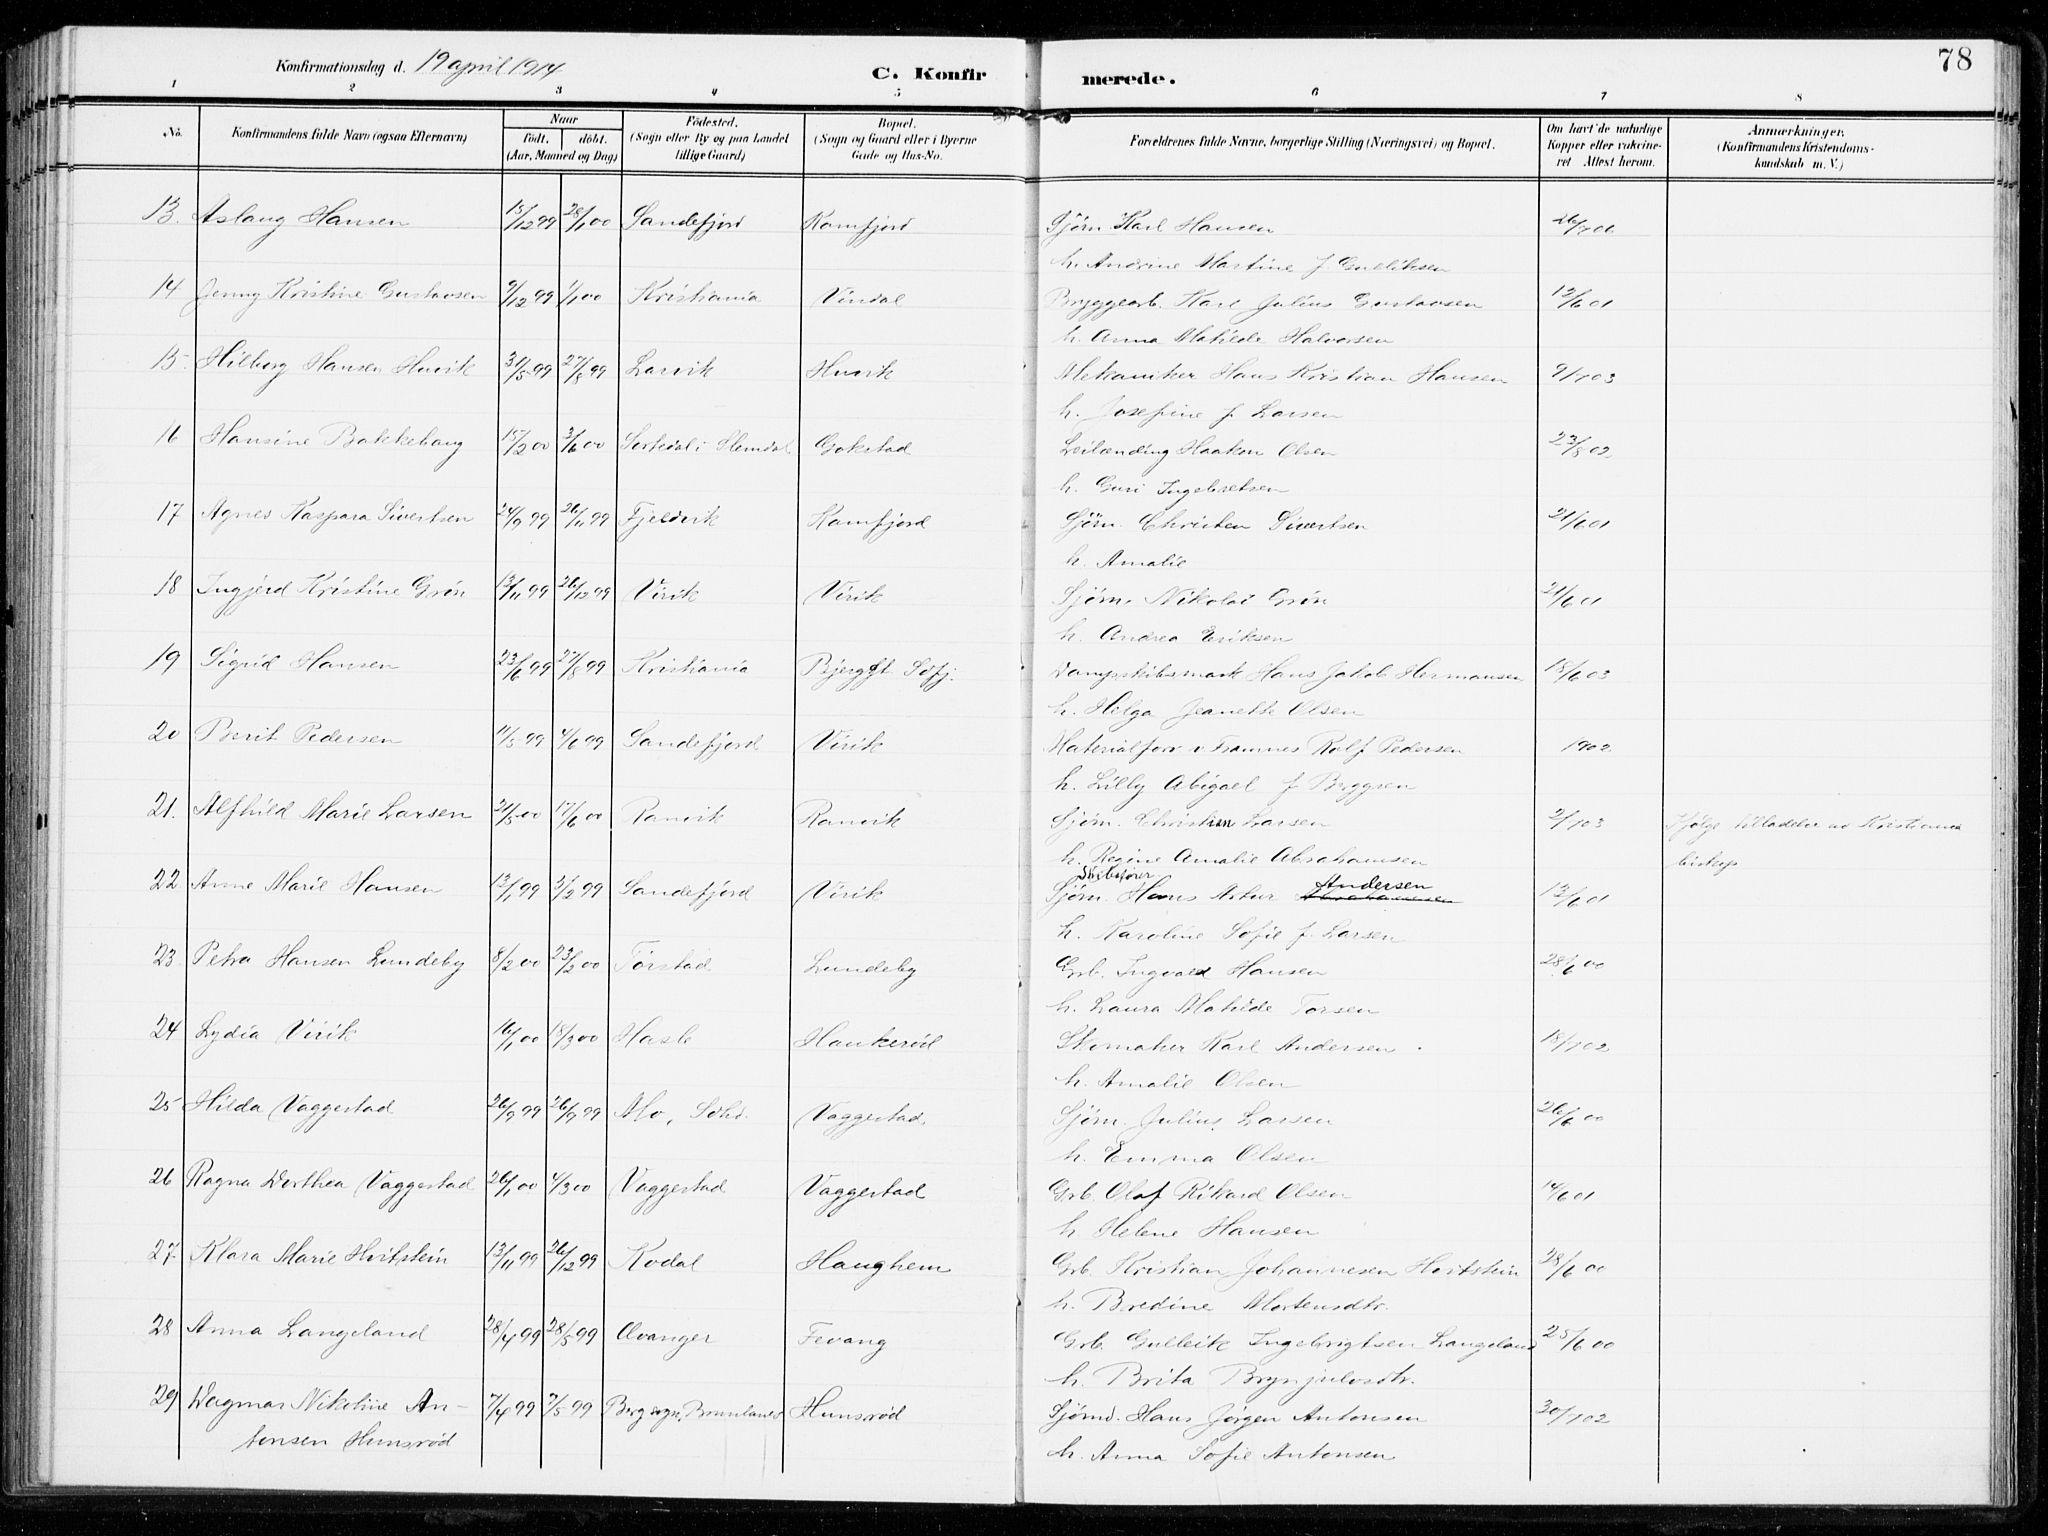 78
Konfirmationsdag d. 19 april 1914
C. Konfirmerede.
1 2 3 4 5 6 7 8
No. Konfirmandens fulde Navn (ogsaa Efternavn) Naar født. døbt. (Aar, Maaned og Dag) Fødested. (Sogn eller By og paa Landet tillige Gaard) Bopæl. (Sogn og Gaard eller i Byerne Gade og Hus-No. Forældrenes fulde Navne, borgerlige Stilling (Næringsvei) og Bopæl. Om havt de naturlige Kopper eller vakcineret Attest herom. Anmærkninger. (Konfirmandens Kristendomskundskab m. V.)
13. Aslaug Hansen 15/12 99 28/1 00 Sandefjord Kamfjord Sjøm. Karl Hansen 26/7 00
h. Andrine Martine f Gulliksen
14 Jenny Kristine Gustavsen 9/12 99 1/1 00 Kristiania Vindal Bryggearb. Karl Julius Gustavsen 12/6 01
h. Anna Matilde Halvorsen
15. Hilborg Hansen Huvik 31/5 99 27/8 99 Larvik Huvik Mekaniker Hans Kristian Hansen 9/7 03
h. Josefine f Larsen
16 Hansine Bakkehaug 15/2 00 3/6 00 Sortedal i Hemdal Gokstad Leilænding Haakon Olsen 23/8 02
h. Guri Ingebretsen
17 Agnes Kaspara Sivertsen 24/9 99 26/11 99 Fjeldvik Kamfjord Sjøm. Christen Sivertsen 21/6 01
h. Amalie
18 Ingjerd Kristine Grøn 13/11 99 26/12 99 Virik Virik Sjøm. Nikolai Grøn 21/6 01
h. Andrea Eriksen
19 Sigrid Hansen 23/6 99 27/8 99 Kristiania Bjerggt Sdfj. Dampskibsmask Hans Jakob Hermansen 18/6 03
h. Helga Jeanette Olsen
20 Berit Pedersen 11/5 99 4/6 99 Sandefjord Virik Materialforv v. Framnes Rolf Pedersen 1902
h. Lilly Abigael f Berggren
21. Alfhild Marie Larsen 21/5 00 17/6 00 Ranvik Ranvik Sjøm. Christian Larsen 2/7 03 Ifølge tilladelse av Kristiania
h. Regine Amalie Abrahamsen biskop
22 Anne Marie Hansen 13/1 99 3/2 99 Sandefjord Virik Sjøm. Skibsfører Hans Artur Abrahamsen Andersen 12/6 01
h. Karoline Sofie f. Larsen
23 Petra Hansen Lundeby 8/2 00 23/2 00 Tørstad Lundeby Grb. Ingvald Hansen 28/6 00
h. Laura Matilde Torsen
24 Lydia Virik 16/1 00 18/3 00 Hasle Haukerød Skomaker Karl Andersen. 18/7 02
h. Amalie Olsen
25 Hilda Vaggestad 26/9 99 26/9 99 Mo, Sdhd. Vaggestad Sjøm. Julius Larsen 26/6 00
h. Emma Olsen
26 Ragna Dorthea Vaggestad 26/1 00 4/3 00 Vaggestad Vaggestad Grb. Olaf Rikard Olsen 14/6 01
h. Helene Hansen
27. Klara Marie Hvitstein 13/11 99 26/12 99 Kodal Haughem Grb. Kristian Johannesen Hvitstein 28/6 00
h. Bredine Mortensdtr.
28 Anna Langeland 28/4 99 28/5 99 Evanger Fevang Grb. Gulleik Ingebrigtsen Langeland 25/6 00
h. Brita Brynjulvsdtr.
29 Dagmar Nikoline An- 7/4 99 7/5 99 Berg sogn, Brunlanes Hunsrød Sjømd. Hans Jørgen Antonsen 30/7 02
tonsen Hunsrød h. Anna Sofie Antonsen